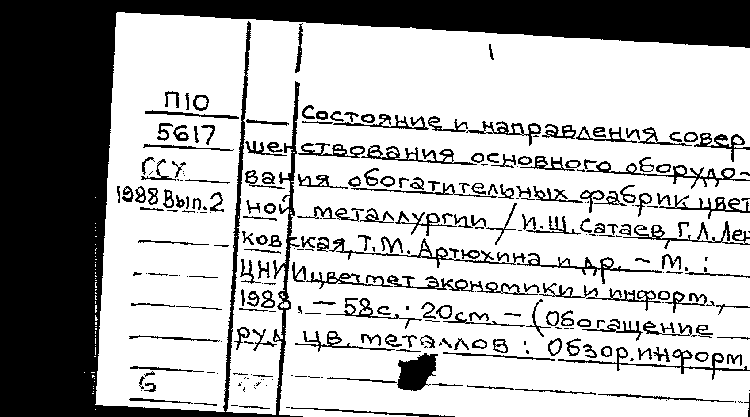 П10
5617
ССХ
1988 Вып.2
Состояние и направления совер
шенствования основного оборудо-
вания обогатительных фабрик цвет
ной металлургии / И.Ш. Сатаев, Г.Л. Лен
ковская, Т.М. Артюхина и др. – М. :
ЦНИИцветмет экономики и информ.,
1988. – 58с. ; 20см. – (Обогащение
руд цв. металлов : Обзор. информ.
6